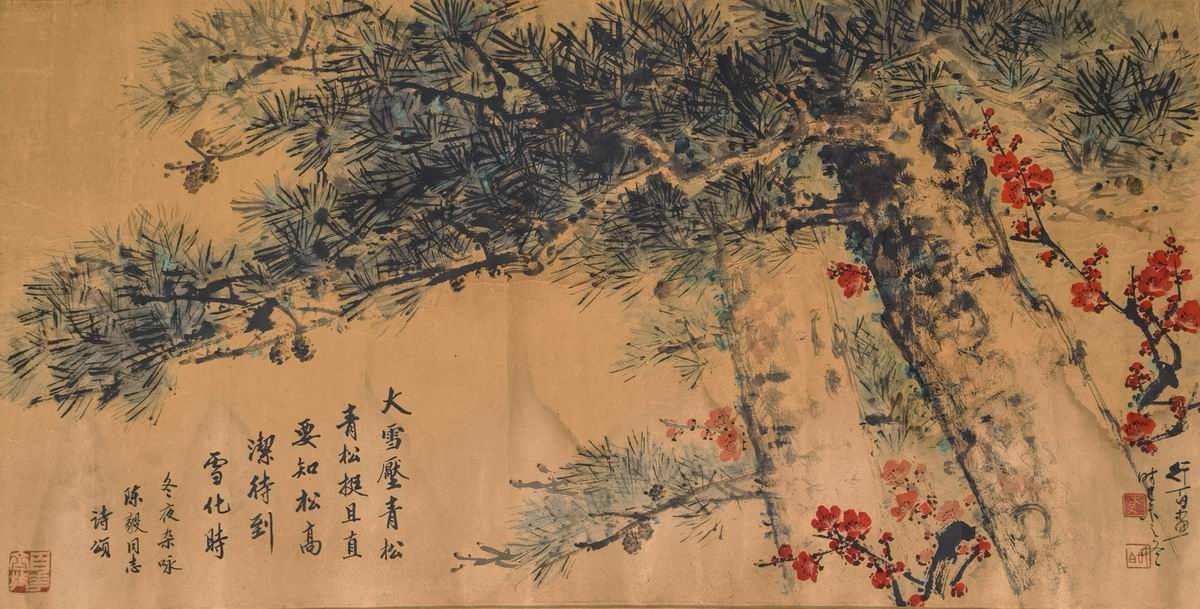 大雪壓青松
青松挺且直
要知松高
潔待到
雪化時
冬夜杂咏
陈毅同志
诗颂